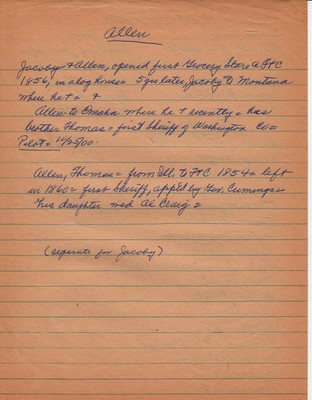 Allen
Jacoby & Allen, opened first Grocery Store @ FtC
1856, in a log house = 5 yrs later, Jacoby to Montana
where he + = +
Allen to Omaha where he + recently = has
brother Thomas = first Sheriff of Washington Co =
Pilot = 10/25/00.
Allen, Thomas = from Ill. to FtC 1854 = left
in 1860 = first Sheriff, app'td by Gov. Cumings =
his daughter med Al Craig =
(separate for Jacoby)